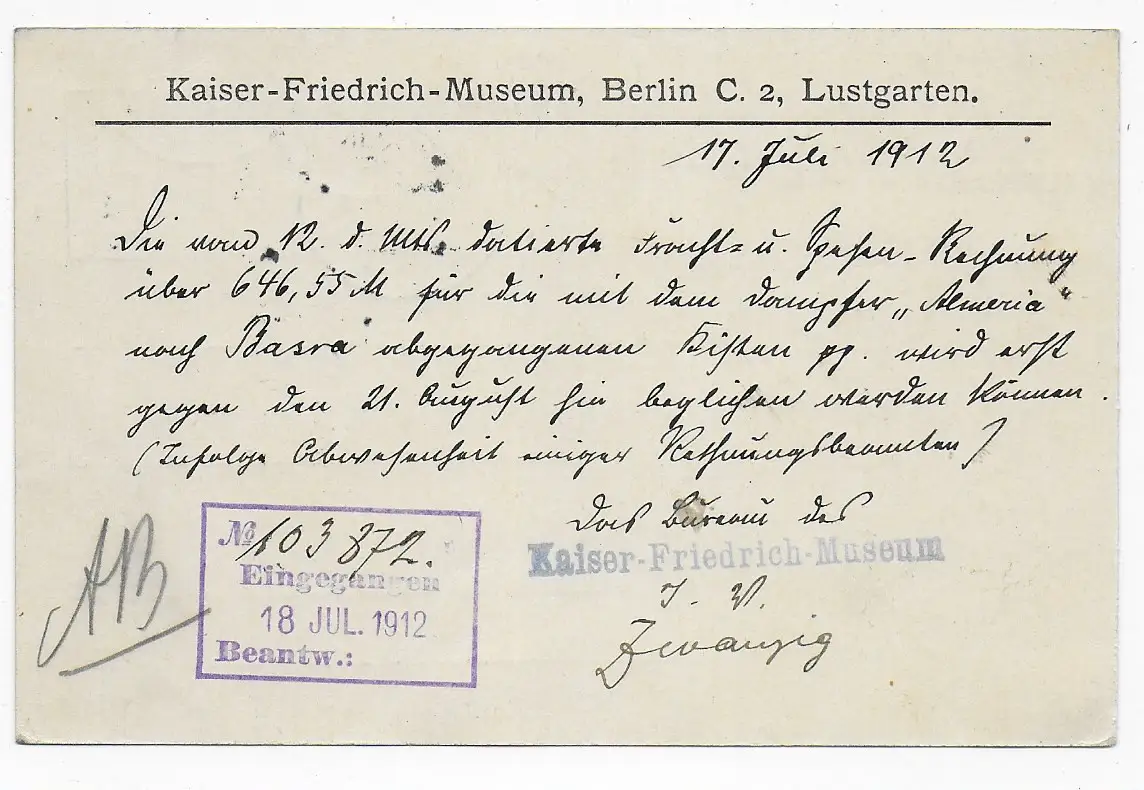 Kaiser-Friedrich-Museum, Berlin C. 2, Lustgarten.
17. Juli 1912
Die vom 12. d. Mts. datierte Fracht- u. Spesen-Rechnung
über 646,55 M für die mit dem Dampfer „Almeria“
nach Basra abgegangenen Kisten pp. wird erst
gegen den 21. August hin beglichen werden können.
(Infolge Abwesenheit einiger Rechnungsbeamten)
Das Bureau des
Kaiser-Friedrich-Museum
I. V.
Zwanzig
AB
No 103872.
Eingegangen
18 JUL. 1912
Beantw.: